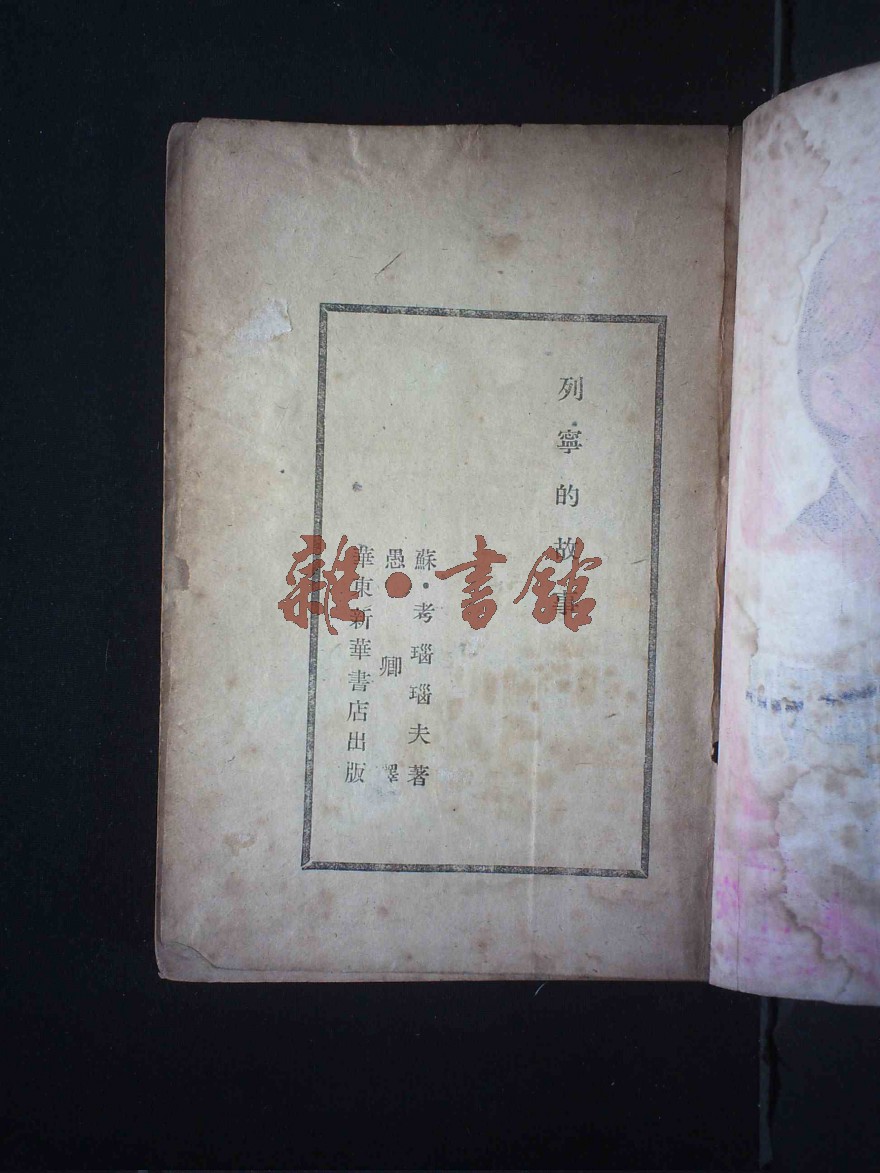 列寧的故事
蘇·考瑙瑙夫著
愚卿譯
華東新華書店出版
雜·書館